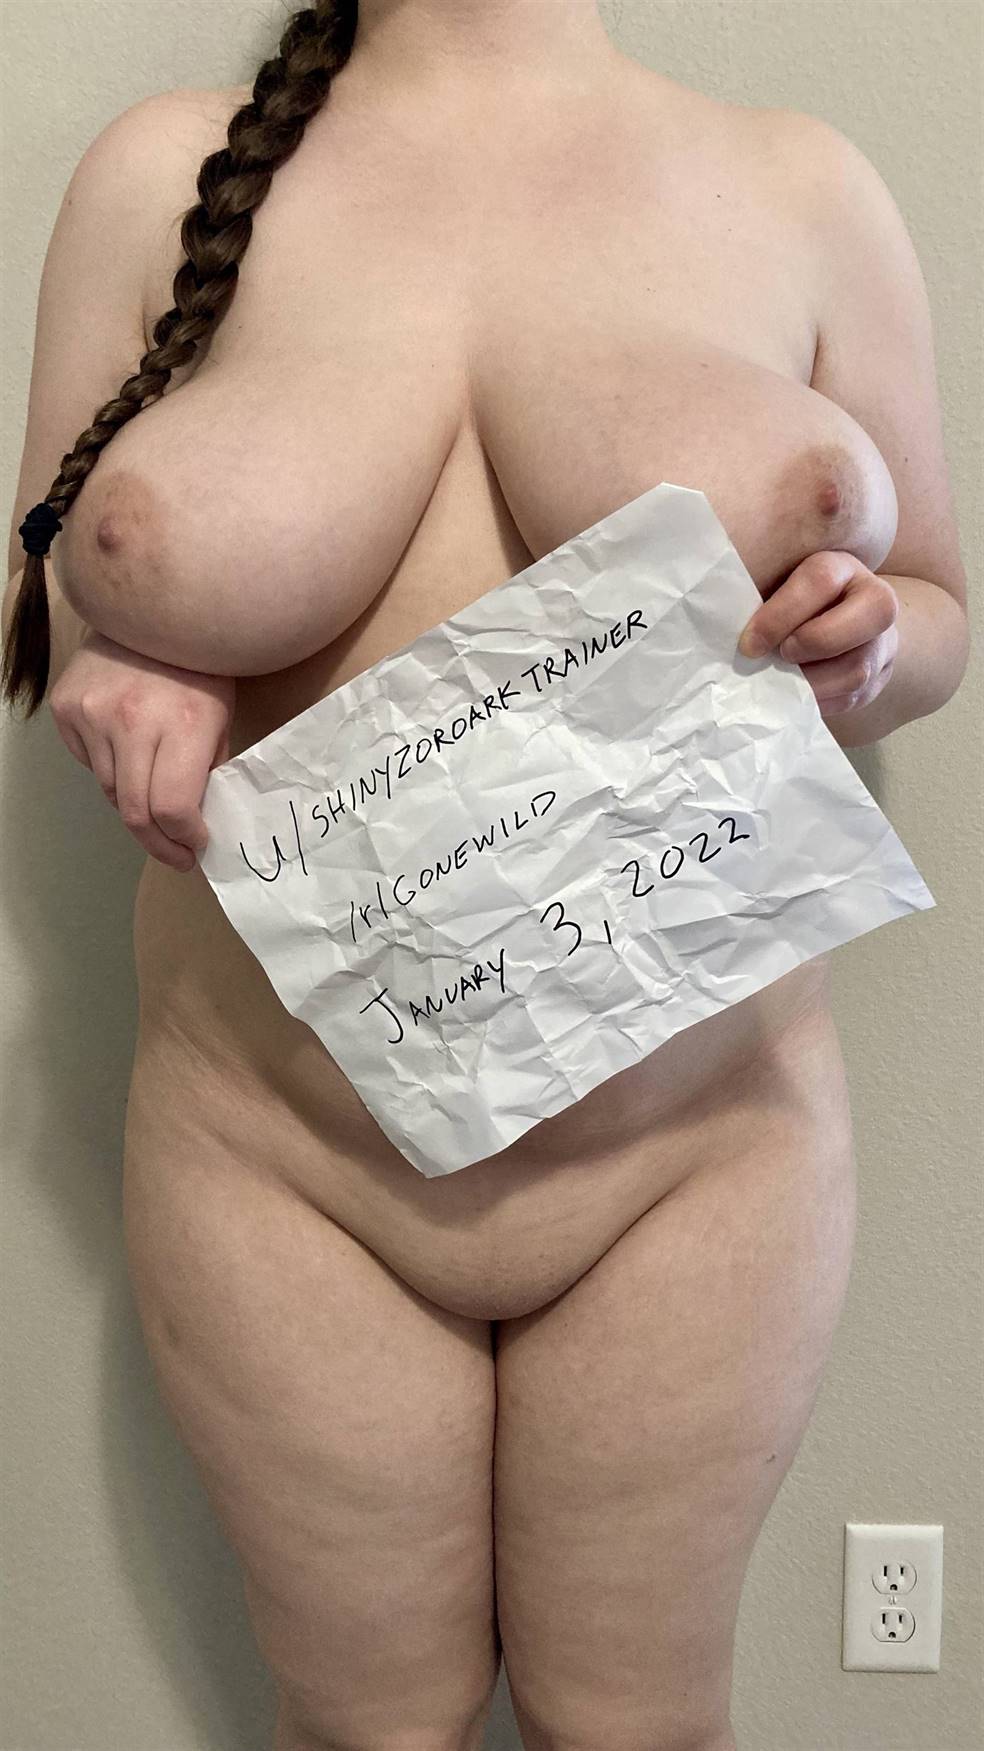 u/SHINYZOROARKTRAINER
/r/GONEWILD
JANUARY 3, 2022